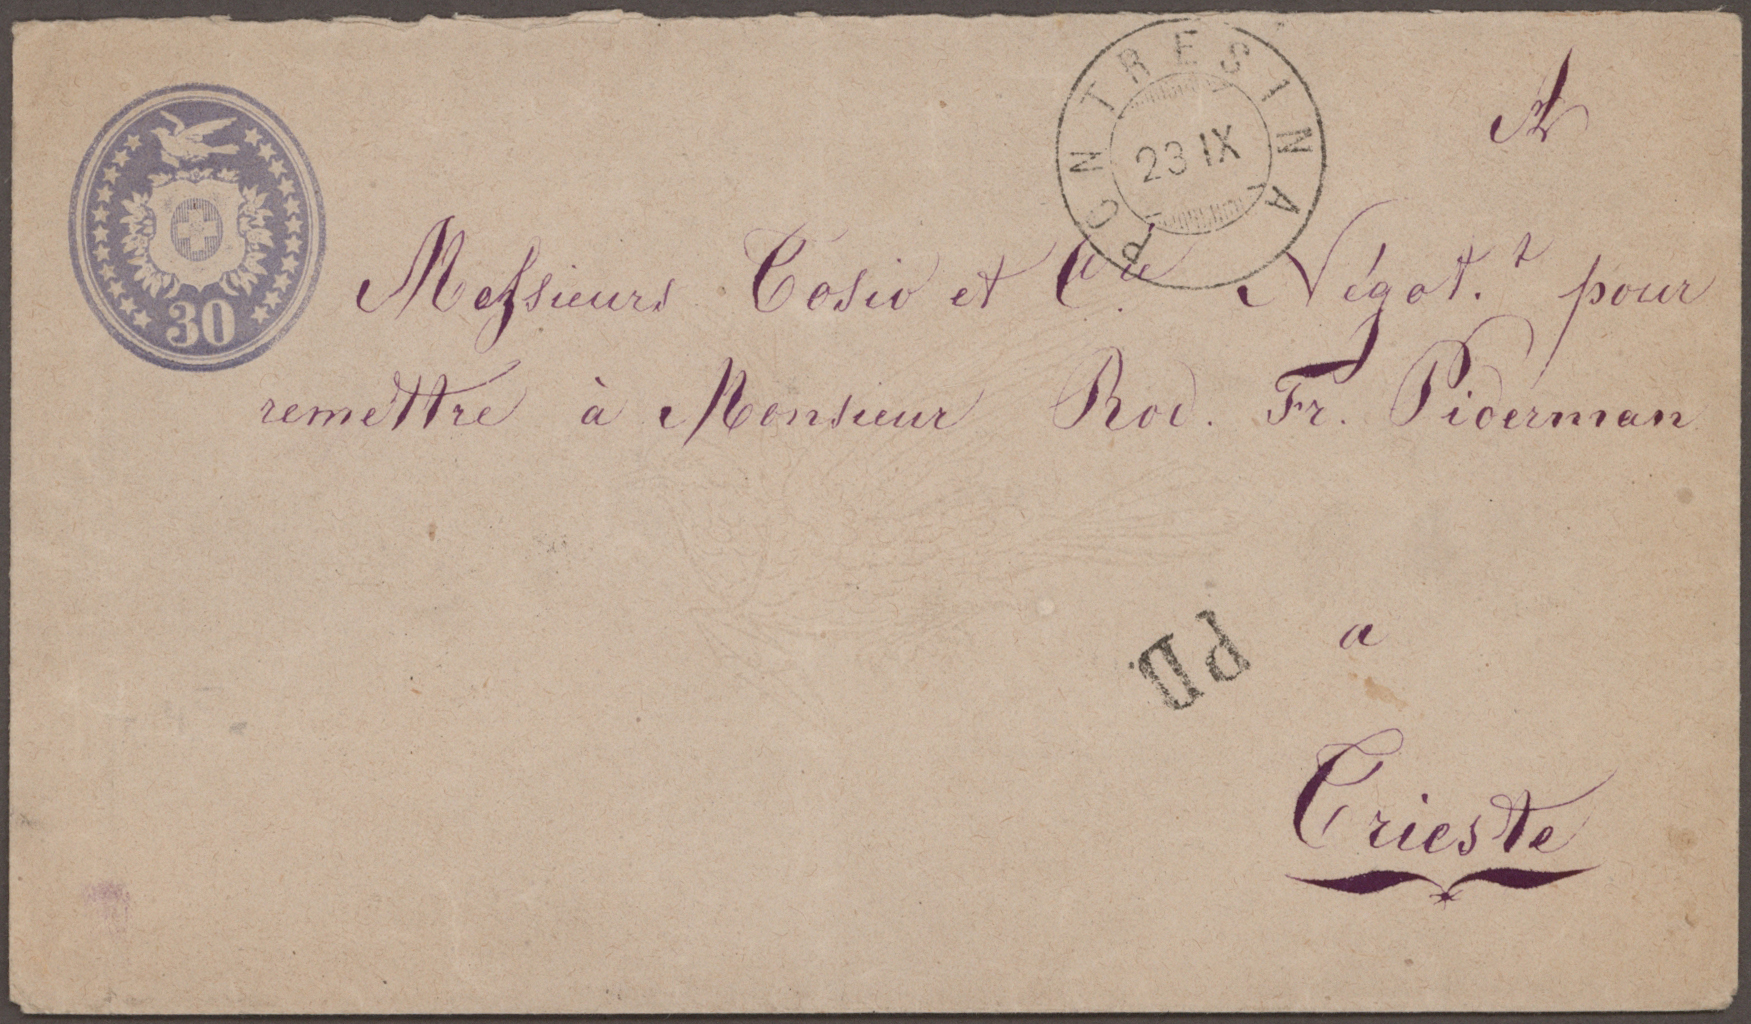 30
PONTRESINA
23 IX
A
Messieurs Cosio et Cie Négot.t pour
remettre à Monsieur Rod. Fr. Piderman
PD
a
Trieste